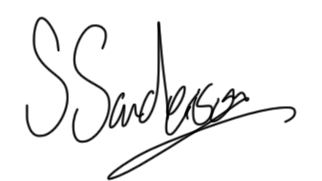 S Sanderson